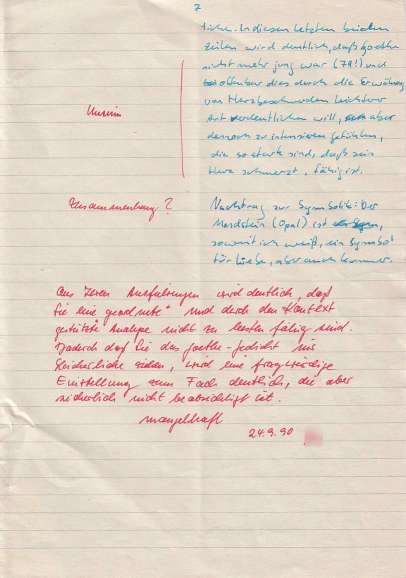 7
liche. In diesen letzten beiden
Zeilen wird deutlich, daß Goethe
nicht mehr jung war (78!) und
offenbar dies durch die Erwähnung
von Herzbeschwerden
Art verdeutlichen will, aber
dennoch zu intensiven Gefühlen,
die so stark sind, daß sein
Herz schmerzt, fähig ist.
Unsinn
Zusammenhang?
Nachtrag zur Symbolik: Der
Mondstein (Opal) ist
soweit ich weiß, ein Symbol
für Liebe, aber auch Kummer.
Aus Ihren Ausführungen wird deutlich, daß
Sie eine und durch den Kontext
gestützte Analyse nicht zu leisten fähig sind.
Dadurch daß Sie das Goethe-Gedicht ins
Lächerliche ziehen, wird eine fragwürdige
Einstellung zum Fach deutlich, die aber
sicherlich nicht beabsichtigt ist.
mangelhaft
24.9.90